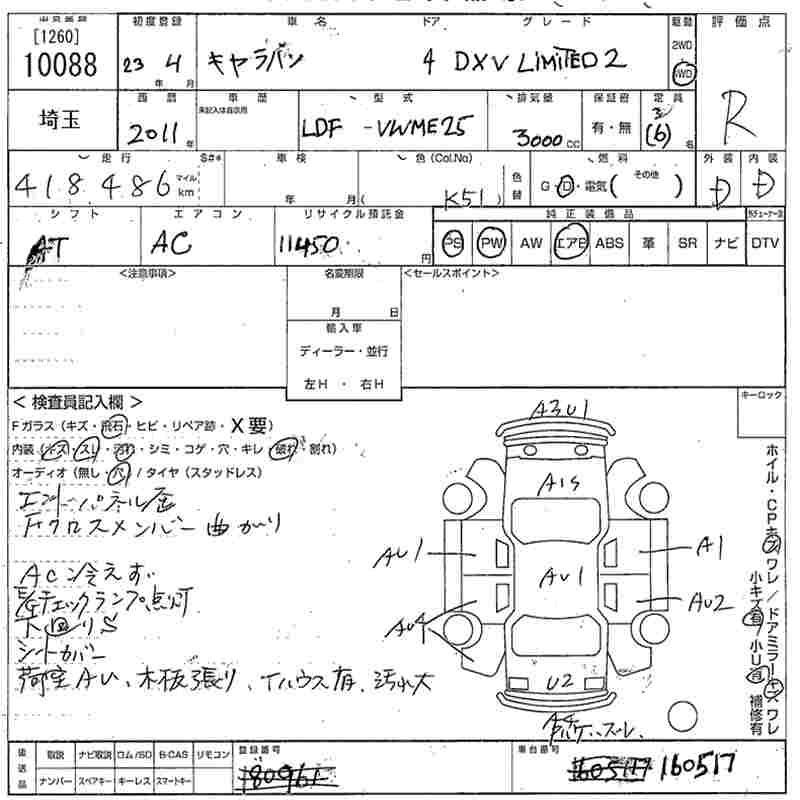 出品番号 初度登録 車名 ドア グレード 駆動 評価点
[1260]
10088 23年 4月 キャラバン 4 DXV LIMITED 2 2WD 4WD
埼玉 西暦 車歴 型式 排気量 保証書 定員
未記入は自家用
2011年 LDF -VWME25 3000cc 有・無 3 (6)名 R
走行 S#* 車検 色(Col.No) 燃料 外装 内装
418.486 マイル km 年 月( K51 ) 色替 G・D・電気( その他 ) D D
シフト エアコン リサイクル預託金 純正装備品
AT AC 11450円 PS PW AW エアB ABS 革 SR ナビ DTV
<注意事項> 名変期限 <セールスポイント>
月 日
輸入車
ディーラー・並行
左H ・ 右H
< 検査員記入欄 > キーロック
Fガラス(キズ・飛石・ヒビ・リペア跡・X要)
内装(キズ・スレ・汚れ・シミ・コゲ・穴・キレ・破れ・割れ)
オーディオ(無し・穴)/タイヤ(スタッドレス)
Fクロスメンバー曲がり
AC冷えず
チェックランプ点灯
下回りS
シートカバー
荷室AU、木板張り、Tハウス有、汚れ大
A3U1
A1S
AU1
A1
AU1
AU4
AU2
U2
ホイル・CPキズワレ/ドアミラーキズワレ
小キズ有/小U有 補修有
後送品 取説 ナビ取説 ロム/SD B-CAS リモコン 登録番号 車台番号
ナンバー スペアキー キーレス スマートキー 180961 160517 160517